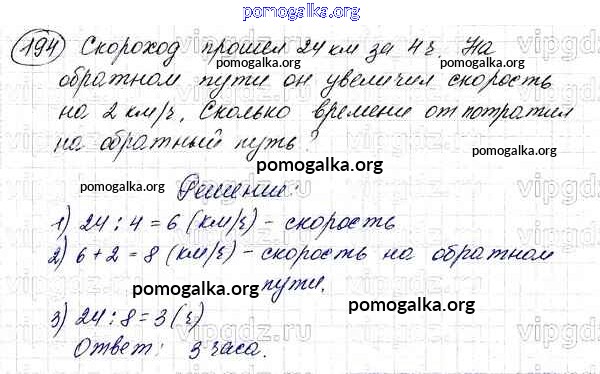 pomogalka.org
194 Скороход прошел 24 км за 4 ч. На
обратном пути он увеличил скорость
на 2 км/ч. Сколько времени от потратил
на обратный путь?
pomogalka.org
pomogalka.org Решение: pomogalka.org
1) 24 : 4 = 6 (км/ч) - скорость
2) 6 + 2 = 8 (км/ч) - скорость на обратном
пути.
pomogalka.org pomogalka.org
3) 24 : 8 = 3 (ч)
Ответ: 3 часа.
pomogalka.org